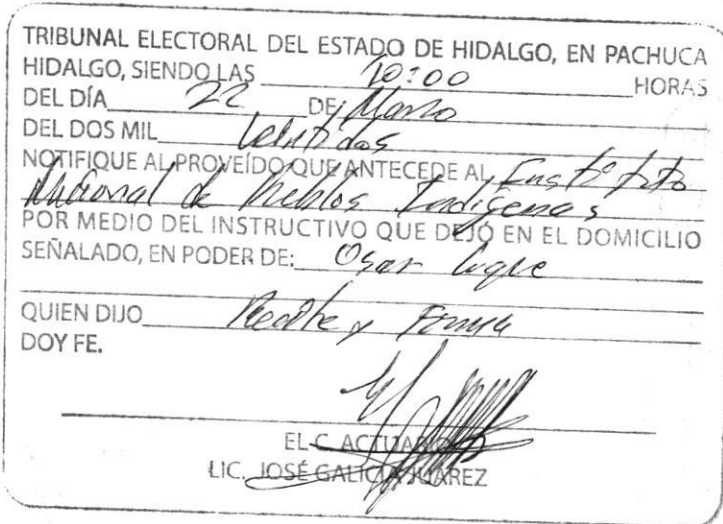 TRIBUNAL ELECTORAL DEL ESTADO DE HIDALGO, EN PACHUCA
HIDALGO, SIENDO LAS 10:00 HORAS
DEL DÍA 22 DE Marzo
DEL DOS MIL Veintidos
NOTIFIQUE AL PROVEÍDO QUE ANTECEDE AL Instituto
Nacional de Pueblos Indígenas
POR MEDIO DEL INSTRUCTIVO QUE DEJÓ EN EL DOMICILIO
SEÑALADO, EN PODER DE: Osar
QUIEN DIJO Recibe y Firma
DOY FE.
EL C. ACTUARIO
LIC. JOSÉ GALICIA JUÁREZ